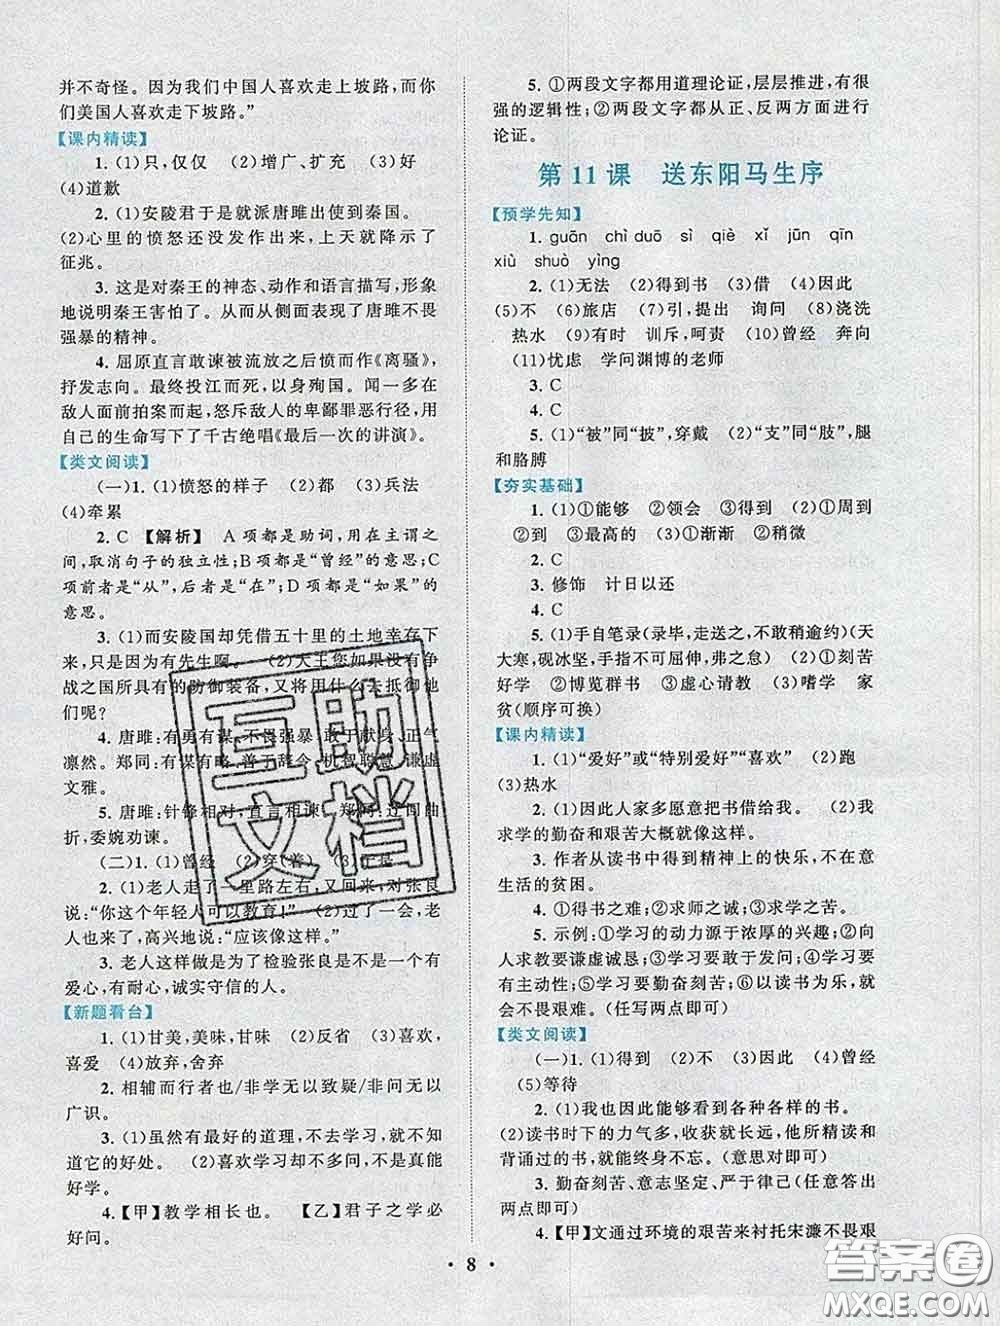 并不奇怪。因为我们中国人喜欢走上坡路,而你
们美国人喜欢走下坡路。”
【课内精读】
1. (1)只,仅仅 (2)增广、扩充 (3)好
(4)道歉
2. (1)安陵君于是就派唐雎出使到秦国。
(2)心里的愤怒还没发作出来,上天就降示了
征兆。
3. 这是对秦王的神态、动作和语言描写,形象
地说明秦王害怕了。从而从侧面表现了唐雎不畏
强暴的精神。
4. 屈原直言敢谏被流放之后愤而作《离骚》,
抒发志向。最终投江而死,以身殉国。闻一多在
敌人面前拍案而起,怒斥敌人的卑鄙罪恶行径,用
自己的生命写下了千古绝唱《最后一次的讲演》。
【类文阅读】
(一)1. (1)愤怒的样子 (2)都 (3)兵法
(4)牵累
2. C 【解析】 A项都是助词,用在主谓之
间,取消句子的独立性;B项都是“曾经”的意思;C
项前者是“从”,后者是“在”;D项都是“如果”的
意思。
3. (1)而安陵国却凭借五十里的土地幸存下
来,只是因为有先生啊。 (2)大王您如果没有争
战之国所具有的防御装备,又将用什么去抵御他
们呢?
4. 唐雎:有勇有谋、不畏强暴,敢于献身、正气
凛然。郑同:有谋有略、善于辞令、机智聪慧、谦虚
文雅。
5. 唐雎:针锋相对,直言相谏;郑同:迂回曲
折,委婉劝谏。
(二)1. (1)曾经 (2)穿(着) (3)于是
2. (1)老人走了一里路左右,又回来,对张良
说:“你这个年轻人可以教育!” (2)过了一会,老
人也来了,高兴地说:“应该像这样。”
3. 老人这样做是为了检验张良是不是一个有
爱心,有耐心,诚实守信的人。
【新题看台】
1. (1)甘美,美味,甘味 (2)反省 (3)喜欢,
喜爱 (4)放弃,舍弃
2. 相辅而行者也/非学无以致疑/非问无以
广识。
3. (1)虽然有最好的道理,不去学习,就不知
道它的好处。 (2)喜欢学习却不多问,不是真能
好学。
4. 【甲】教学相长也。 【乙】君子之学必
好问。
5. ①两段文字都用道理论证,层层推进,有很
强的逻辑性;②两段文字都从正、反两方面进行
论证。
第 11 课 送东阳马生序
【预学先知】
1. guān chì duō sì qiè xǐ jūn qīn
xiù shuò yìng
2. (1)无法 (2)得到书 (3)借 (4)因此
(5)不 (6)旅店 (7)引,提出 询问 (8)浇洗
热水 (9)有时 训斥,呵责 (10)曾经 奔向
(11)忧虑 学问渊博的老师
3. C
4. C
5. (1)“被”同“披”,穿戴 (2)“支”同“肢”,腿
和胳膊
【夯实基础】
1. (1)①能够 ②领会 ③得到 (2)①周到
②到 ③最高的 (3)①渐渐 ②稍微
2. C
3. 修饰 计日以还
4. C
5. (1)手自笔录(录毕,走送之,不敢稍逾约)(天
大寒,砚冰坚,手指不可屈伸,弗之怠) (2)①刻苦
好学 ②博览群书 ③虚心请教 (3)嗜学 家
贫(顺序可换)
【课内精读】
1. (1)“爱好”或“特别爱好”“喜欢” (2)跑
(3)热水
2. (1)因此人家多愿意把书借给我。 (2)我
求学的勤奋和艰苦大概就像这样。
3. 作者从读书中得到精神上的快乐,不在意
生活的贫困。
4. ①得书之难;②求师之诚;③求学之苦。
5. 示例:①学习的动力源于浓厚的兴趣;②向
人求教要谦虚诚恳;③学习要敢于发问;④学习要
有主动性;⑤学习要勤奋刻苦;⑥以读书为乐,就
会不畏艰难。(任写两点即可)
【类文阅读】
(一)1. (1)得到 (2)不 (3)因此 (4)曾经
(5)等待
2. (1)我也因此能够看到各种各样的书。
(2)读书时下的力气多,收获就长远,他所精读和
背诵过的书,就能终身不忘。(意思对即可)
3. 勤奋刻苦、意志坚定、严于律己(任意答出
两点即可)
4. 【甲】文通过环境的艰苦来衬托宋濂不畏艰
· 8 ·
互助
文档
答案圈
MXQE.COM